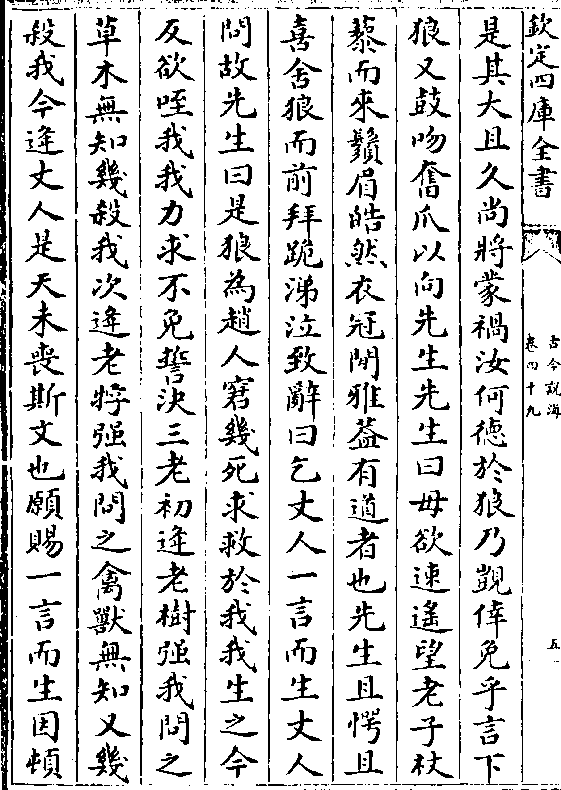 欽定四庫全書
古今說海
卷四十九
五
是其大且久尚將蒙禍汝何徳於狼乃覬倖免乎言下
狼又鼓吻奮爪以向先生先生曰毋欲速遙望老子杖
藜而來鬚眉皓然衣冠閒雅葢有道者也先生且愕且
喜舍狼而前拜跪涕泣致辭曰乞丈人一言而生丈人
問故先生曰是狼為趙人窘幾死求救於我我生之今
反欲咥我我力求不免誓決三老初逄老樹强我問之
草木無知幾殺我次逄老牸强我問之禽獸無知又幾
殺我今逄丈人是天未喪斯文也願賜一言而生因頓